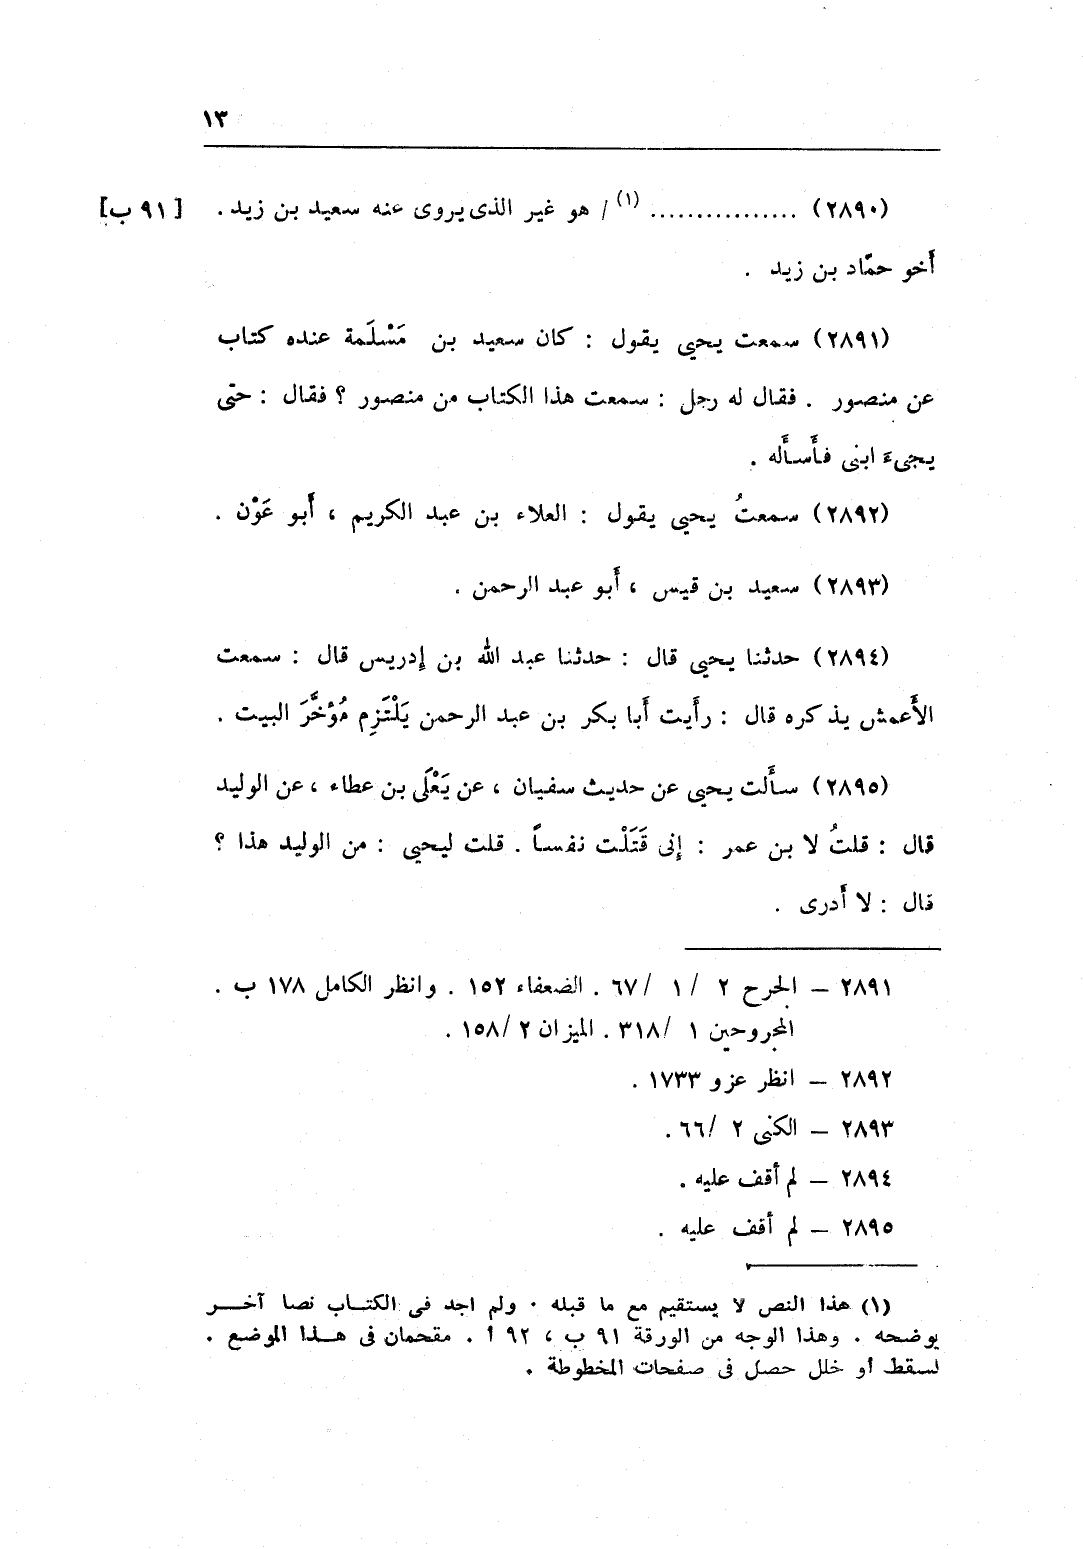 ١٣
(٢٨٩٠) ................ (١) / هو غير الذى يروى عنه سعيد بن زيد . [ ٩١ ب]
أَخو حمّاد بن زيد .
(٢٨٩١) سمعت يحيى يقول : كان سعيد بن مَسْلَمة عنده كتاب
عن منصور . فقال له رجل : سمعت هذا الكتاب من منصور ؟ فقال : حتّى
يجىءَ ابنى فأَسأَله .
(٢٨٩٢) سمعتُ يحيى يقول : العلاء بن عبد الكريم ، أَبو عَوْن .
(٢٨٩٣) سعيد بن قيس ، أَبو عبد الرحمن .
(٢٨٩٤) حدثنا يحيى قال : حدثنا عبد الله بن إدريس قال : سمعت
الأَعمش يذكره قال : رأَيت أَبا بكر بن عبد الرحمن يَلْتَزِم مُؤخَّرَ البيت .
(٢٨٩٥) سأَلت يحيى عن حديث سفيان ، عن يَعْلَى بن عطاء ، عن الوليد
قال : قلتُ لا بن عمر : إنى قَتَلْت نفساً . قلت ليحيى : من الوليد هذا ؟
قال : لا أَدرى .
٢٨٩١ – الجرح ٢ / ١ / ٦٧ . الضعفاء ١٥٢ . وانظر الكامل ١٧٨ ب .
المجروحين ١ / ٣١٨ . الميزان ٢ / ١٥٨ .
٢٨٩٢ – انظر عزو ١٧٣٣ .
٢٨٩٣ – الكنى ٢ / ٦٦ .
٢٨٩٤ – لم أقف عليه .
٢٨٩٥ – لم أقف عليه .
(١) هذا النص لا يستقيم مع ما قبله . ولم اجد فى الكتاب نصا آخر
يوضحه . وهذا الوجه من الورقة ٩١ ب ، ٩٢ أ . مقحمان فى هذا الموضع .
لسقط أو خلل حصل فى صفحات المخطوطة .